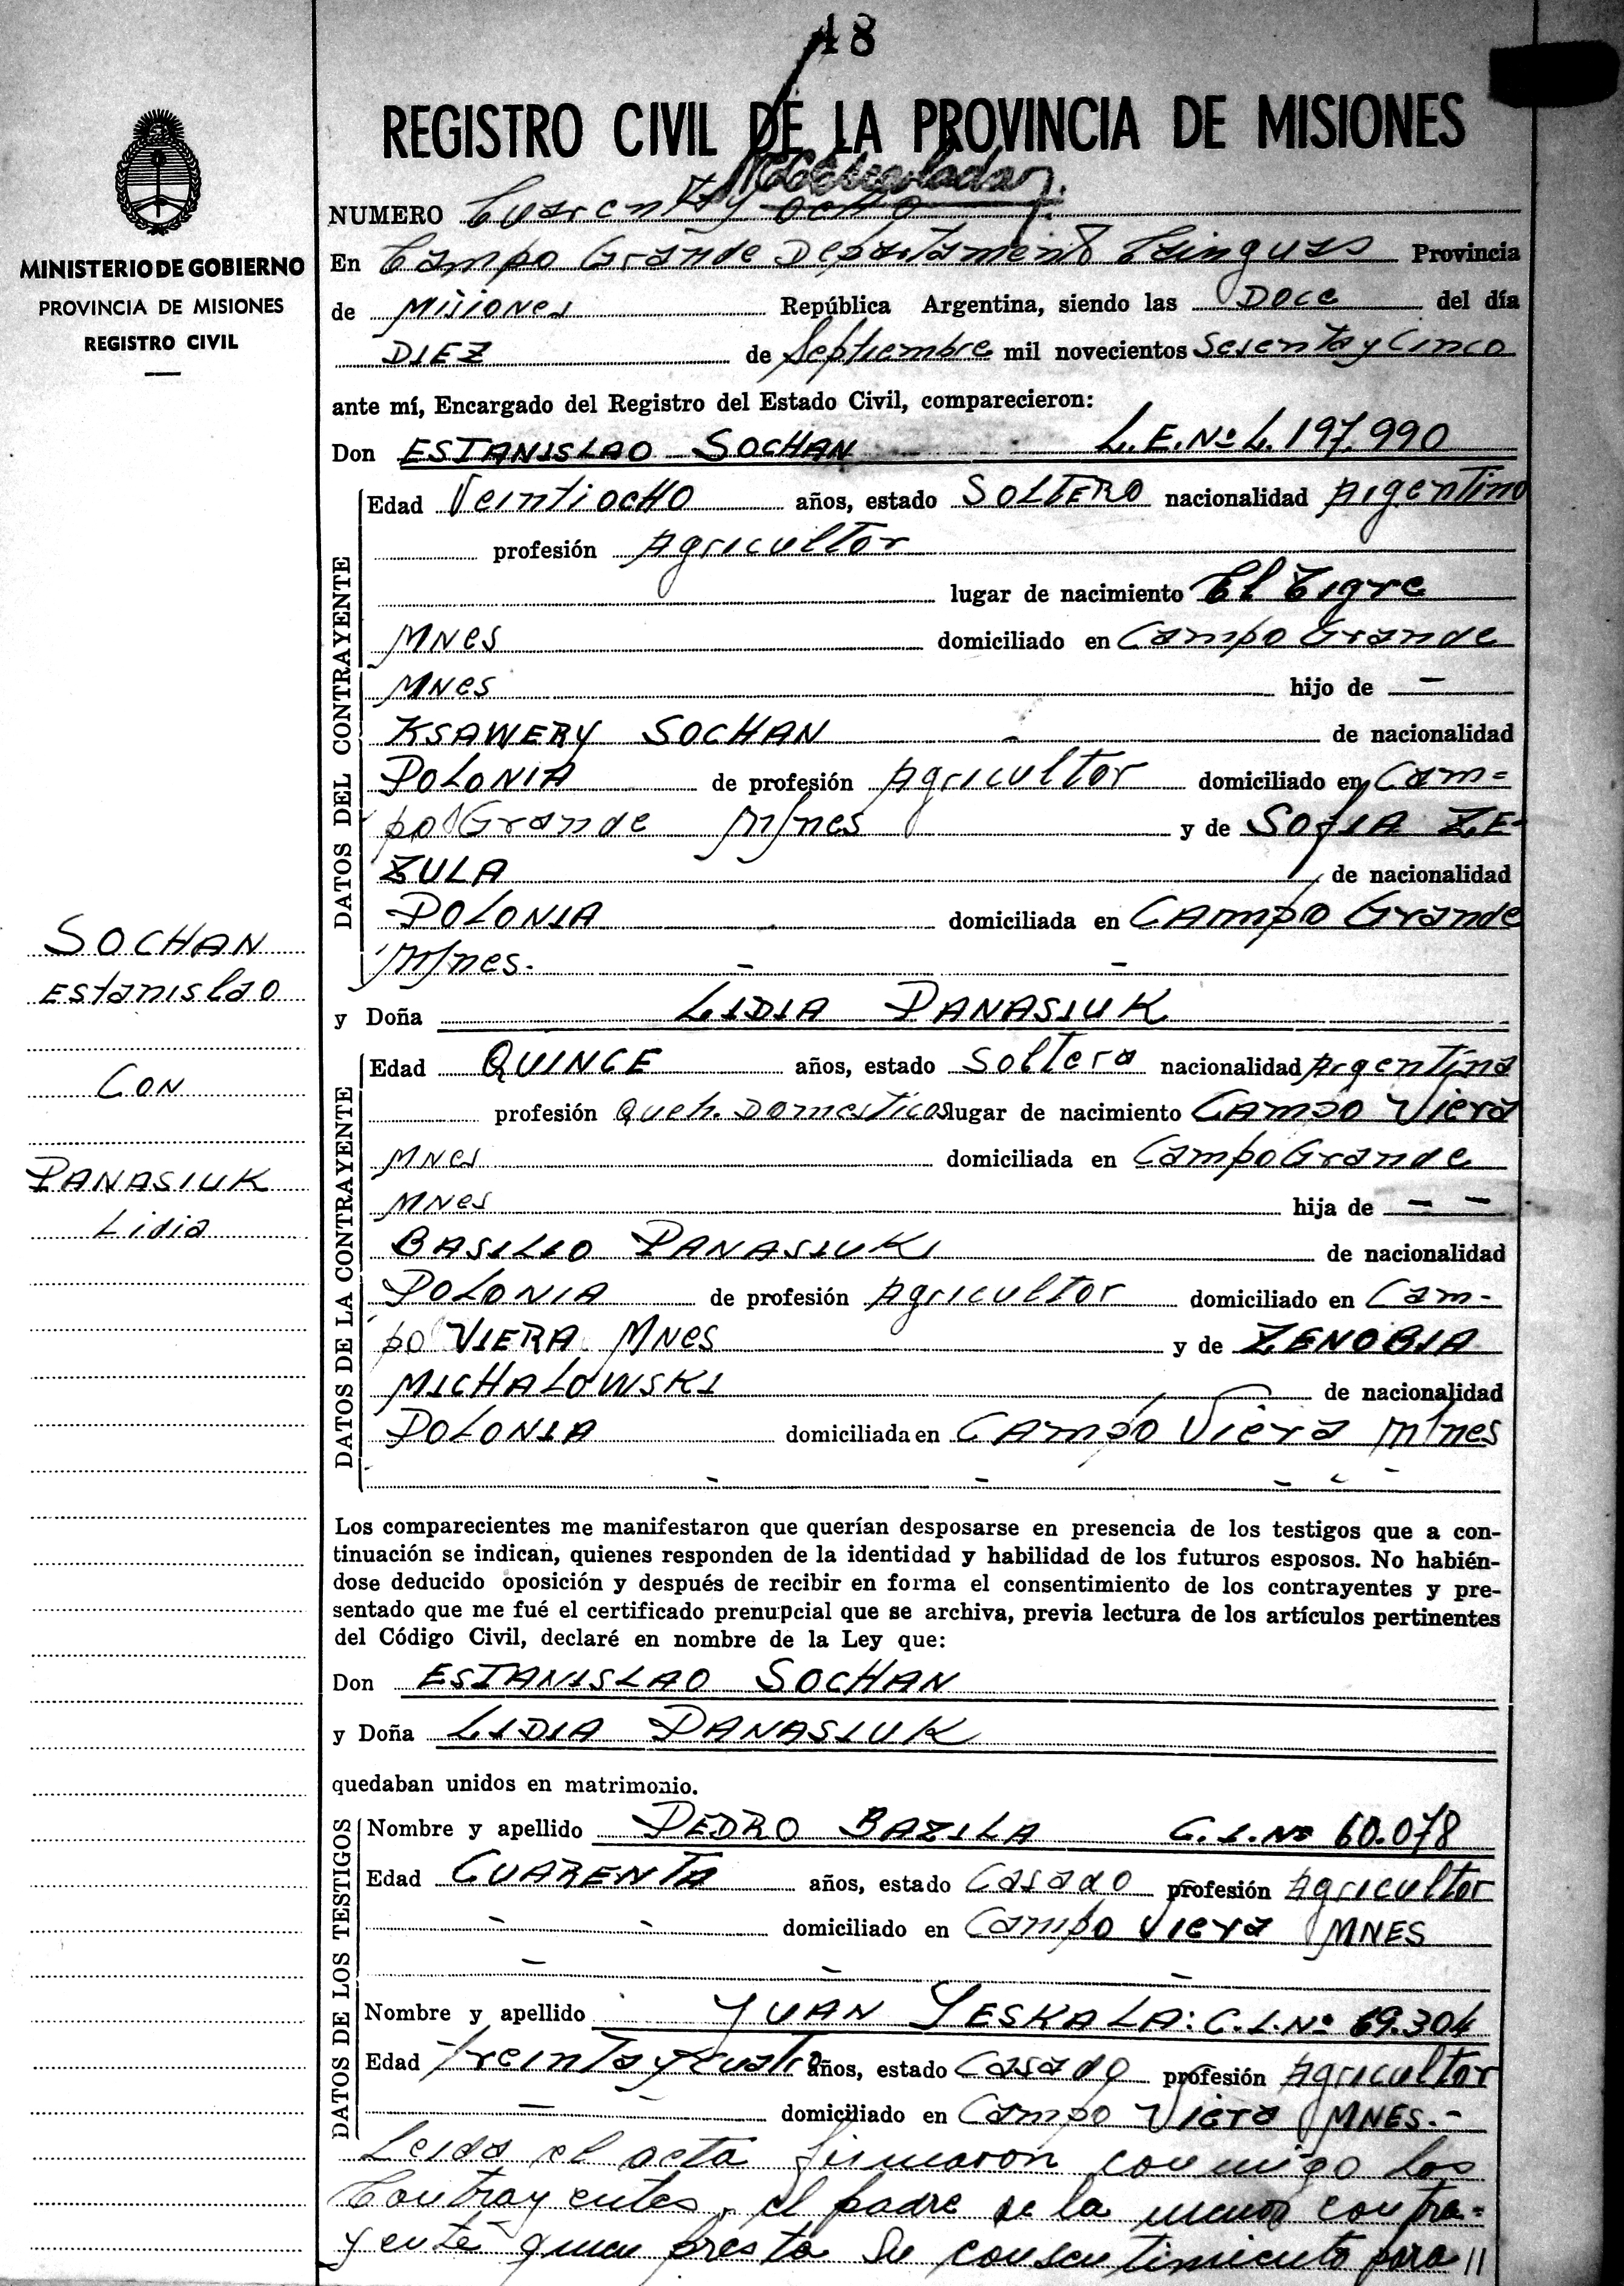 48
REGISTRO CIVIL DE LA PROVINCIA DE MISIONES
MINISTERIO DE GOBIERNO
PROVINCIA DE MISIONES
REGISTRO CIVIL
SOCHAN
Estanislao
Con
PANASIUK
Lidia
NUMERO Cuarenta y ocho
En Campo Grande Departamento Cainguas Provincia
de Misiones República Argentina, siendo las Doce del día
DIEZ de Septiembre mil novecientos Sesenta y Cinco
ante mí, Encargado del Registro del Estado Civil, comparecieron:
Don ESTANISLAO SOCHAN L.E.Nº L.197.990
DATOS DEL CONTRAYENTE
Edad Veintiocho años, estado SOLTERO nacionalidad Argentino
profesión Agricultor
lugar de nacimiento El Tigre
MNes domiciliado en Campo Grande
MNes hijo de —
KSAWERY SOCHAN de nacionalidad
POLONIA de profesión Agricultor domiciliado en Cam=
po Grande M/nes y de SOfIA ZE-
ZULA de nacionalidad
POLONIA domiciliada en CAmpo Grande
M/nes. - -
y Doña LIDIA PANASIUK
DATOS DE LA CONTRAYENTE
Edad QUINCE años, estado Soltera nacionalidad Argentina
profesión Queh. Domesticos lugar de nacimiento CAmpo Viera
MNes domiciliada en Campo Grande
MNes hija de — —
BASILIO PANASIUK de nacionalidad
POLONIA de profesión Agricultor domiciliado en Cam-
po VIERA MNes y de ZENOBIA
MICHALOWSKI de nacionalidad
POLONIA domiciliada en CAmpo Viera M/nes
Los comparecientes me manifestaron que querían desposarse en presencia de los testigos que a con-
tinuación se indican, quienes responden de la identidad y habilidad de los futuros esposos. No habién-
dose deducido oposición y después de recibir en forma el consentimiento de los contrayentes y pre-
sentado que me fué el certificado prenupcial que se archiva, previa lectura de los artículos pertinentes
del Código Civil, declaré en nombre de la Ley que:
Don ESTANISLAO SOCHAN
y Doña LIDIA PANASIUK
quedaban unidos en matrimonio.
DATOS DE LOS TESTIGOS
Nombre y apellido PEDRO BAZILA C.I.Nº 60.078
Edad CUARENTA años, estado Casado profesión Agricultor
domiciliado en Campo Viera MNES
Nombre y apellido JUAN YESKALA: C.I.Nº 69.304
Edad Treinta y cuatro años, estado Casado profesión Agricultor
domiciliado en Campo Viera MNES.-
Leida el acta firmaron conmigo los
Contrayentes, el padre de la menor contra=
yente quien presta su consentimiento para //